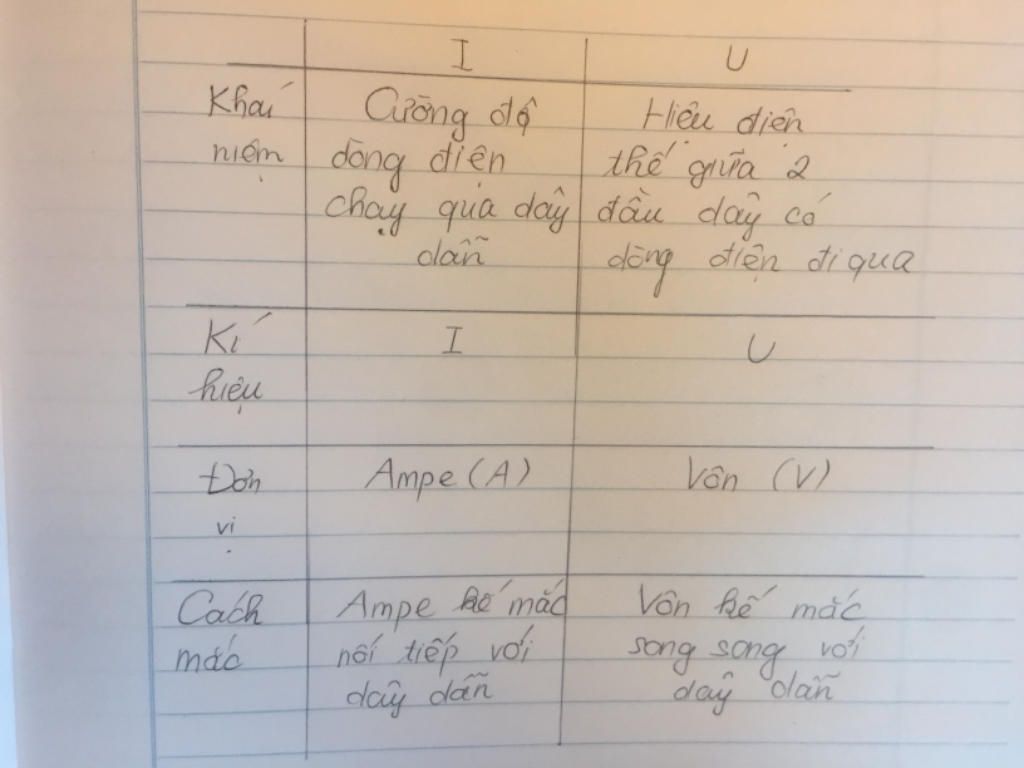 I U
Khái Cường độ Hiệu điện
niệm dòng điện thế giữa 2
chạy qua dây đầu dây có
dẫn dòng điện đi qua
Kí I U
hiệu
Đơn Ampe (A) Vôn (V)
vị
Cách Ampe kế mắc Vôn kế mắc
mắc nối tiếp với song song với
dây dẫn dây dẫn